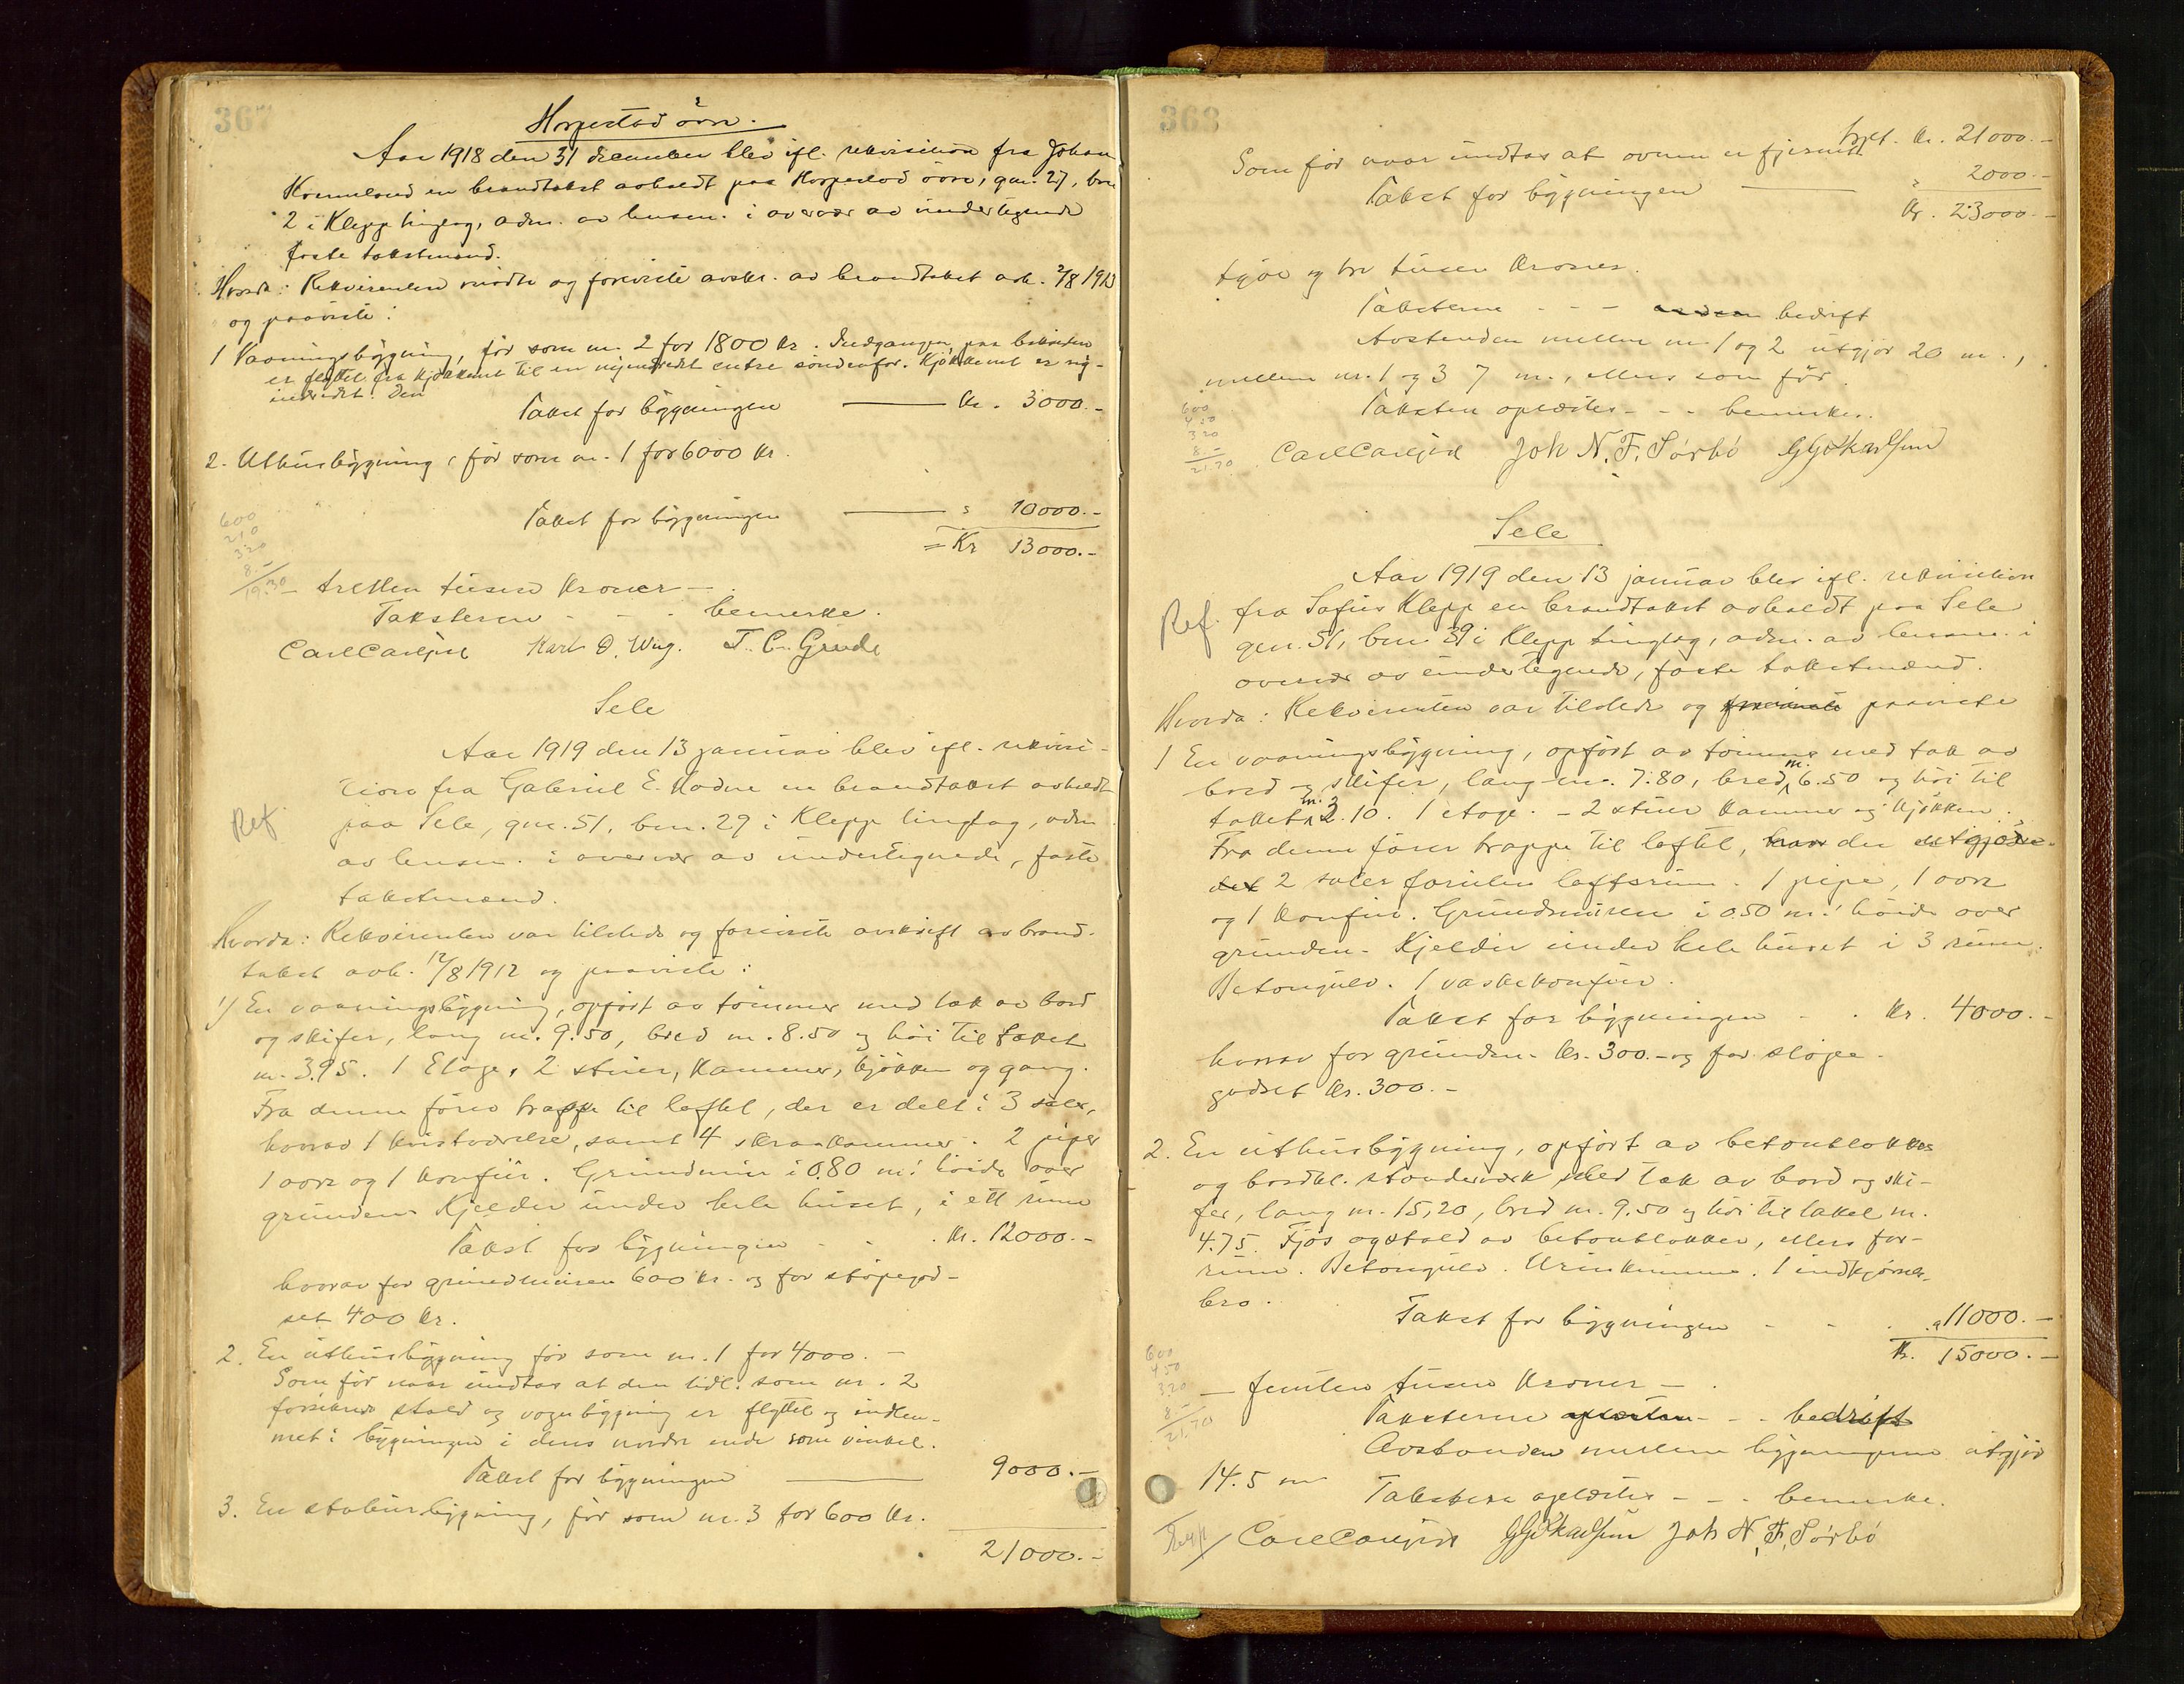 367
Horpestad övre.
Aar 1918 den 31 december blev ifl. rekvisition fra Johan
en brandtakst avholdt paa Horpestad övre, gnr. 27, bnr
2 i Klepp tinglag, adm. av lensm. i overvær av undertegnede
faste takstmænd.
Hvorda: Rekvirenten mödte og foreviste avskr. av brandtakst avh. 2/8 1912
og paaviste:
1 Vaaningsbygning, för som nr. 2 for 1800 kr. Indgangen paa baksiden
er flyttet fra kjökkenet til en nyindredet entre söndenfor. Kjökkenet er ny-
indredet. Den
Takst for bygningen — kr. 3000.-
2. Uthusbygning, för som nr. 1 for 6000 kr.
Takst for bygningen — " 10000.-
= Kr 13000.-
600
210
320
8.-
19.30
- tretten tusen kroner -
Taksterne - - - bemerke.
Carl Karl O. Wiig. T. C. Grude
Sele
Aar 1919 den 13 januar blev ifl. rekvisi-
tion fra Gabriel E. Hodne en brandtakst avholdt
Ref.
paa Sele, gnr. 51, bnr. 29 i Klepp tinglag, adm.
av lensm. i overvær av undertegnede, faste
takstmænd.
Hvorda: Rekvirenten var tilstede og foreviste avskrift av brand-
takst avh. 12/8 1912 og paaviste:
1/ En vaaningsbygning, opfört av tömmer med tak av bord
og skifer, lang m. 9.50, bred m. 8.50 og höi til taket
m. 3.95. 1 Etage, 2 stuer, kammer, kjökken og gang.
Fra denne förer trappe til loftet, der er delt i 3 saler,
hvorav 1 kvistværelse, samt 4 skraakammer. 2 piper
1 ovn og 1 komfür. Grundmur i 0.80 m.s höide over
grunden. Kjelder under hele huset, i ett rum
Takst for bygningen - - . kr. 12000.-
hvorav for grundmuren 600 kr. og for stöpegod-
set 400 kr.
2. En uthusbygning för som nr. 1 for 4000.-
Som för naar undtas at den tidl. som nr. 2
forsikrede stald og vognbygning er flyttet og indlem-
met i bygningen i dens nordre ende som vinkel.
Takst for bygningen — 9000.-
3. En stabursbygning, för som nr. 3 for 600 kr.
21000.-
368
trspt. kr. 21000.-
Som för naar undtas at ovnen er fjernet
Takst for bygningen — " 2000.-
Kr. 23000.-
tyve og tre tusen kroner.
Taksterne - - - bedrift
Avstanden mellem nr. 1 og 2 utgjör 20 m.,
mellem nr. 1 og 3 7 m., ellers som för.
Taksten oplæstes - - - bemerkes.
600
450
320
8.-
21.70
Carl Joh N. F. Sörbö
Sele
Aar 1919 den 13 januar blev ifl. rekvisition
Ref.
fra Sofus Klepp en brandtakst avholdt paa Sele
gnr. 51, bnr. 39 i Klepp tinglag, adm. av lensm. i
overvær av undertegnede, faste takstmænd.
Hvorda: Rekvirenten var tilstede og foreviste paaviste
1 En vaaningsbygning, opfört av tömmer med tak av
bord og skifer, lang m. 7.80, bred m. 6.50 og höi til
taket m. 3.10. 1 etage. - 2 stuer kammer og kjökken.
Fra denne förer trappe til loftet, hvor der
2 saler foruten loftsrum. 1 pipe, 1 ovn
og 1 komfür. Grundmuren i 0.50 m.s höide over
grunden. Kjelder under hele huset i 3 rum.
Betongulv. 1 vaskekomfür.
Takst for bygningen - . kr. 4000.-
hvorav for grunden kr. 300.- og for stöpe-
godset kr. 300.-
2. En uthusbygning, opfört av betonblokker
og bordkl. stenderverk med tak av bord og ski-
fer, lang m. 15,20, bred m. 9.50 og höi til taket m.
4.75. Fjös og stald av betonblokker, ellers for-
rum. Betongulv. Urinkumme. 1 indkjörsels-
bro.
Takst for bygningen - - . " 11000.-
Kr. 15000.-
600
450
320
8.-
21.70
- femten tusen kroner -
Taksterne oplæstes - - . bedrift
Avstanden mellem bygningerne utgjör
14.5 m
Taksterne oplæstes - - . bemerke.
Carl Joh N. F. Sörbö